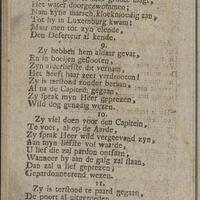 Het water doorgezwommen:
Nam kyne marsch, kloekmoedig aan,
Tot hy in Luxemburg kwam:
Maar men tot zyn elende,
Den Deserteur al kende.
9.
Zy hebben hem aldaar gevat,
En in boeijen gesloten,
Zyn allerliefste die vernam,
Het heeft haar zeer verdrooten!
Zy is terstond zonder beraan,
Al na de Capiteit gegaan,
Zy sprak myn Heer geprezen,
Wild dog genadig wezen.
10.
Zy viel doen voor den Capitein,
Te voet, al op de Aarde,
Zy sprak Heer wild vergeevend zyn,
Aan myn liefste vol waarde,
U lief die zal pardon ontfaan,
Wanneer hy aan de galg zal staan,
Dan zal u lief geprezen,
Gepardonneerend wezen.
11.
Zy is terstond te paard gegaan,
De poort al uitgereeden